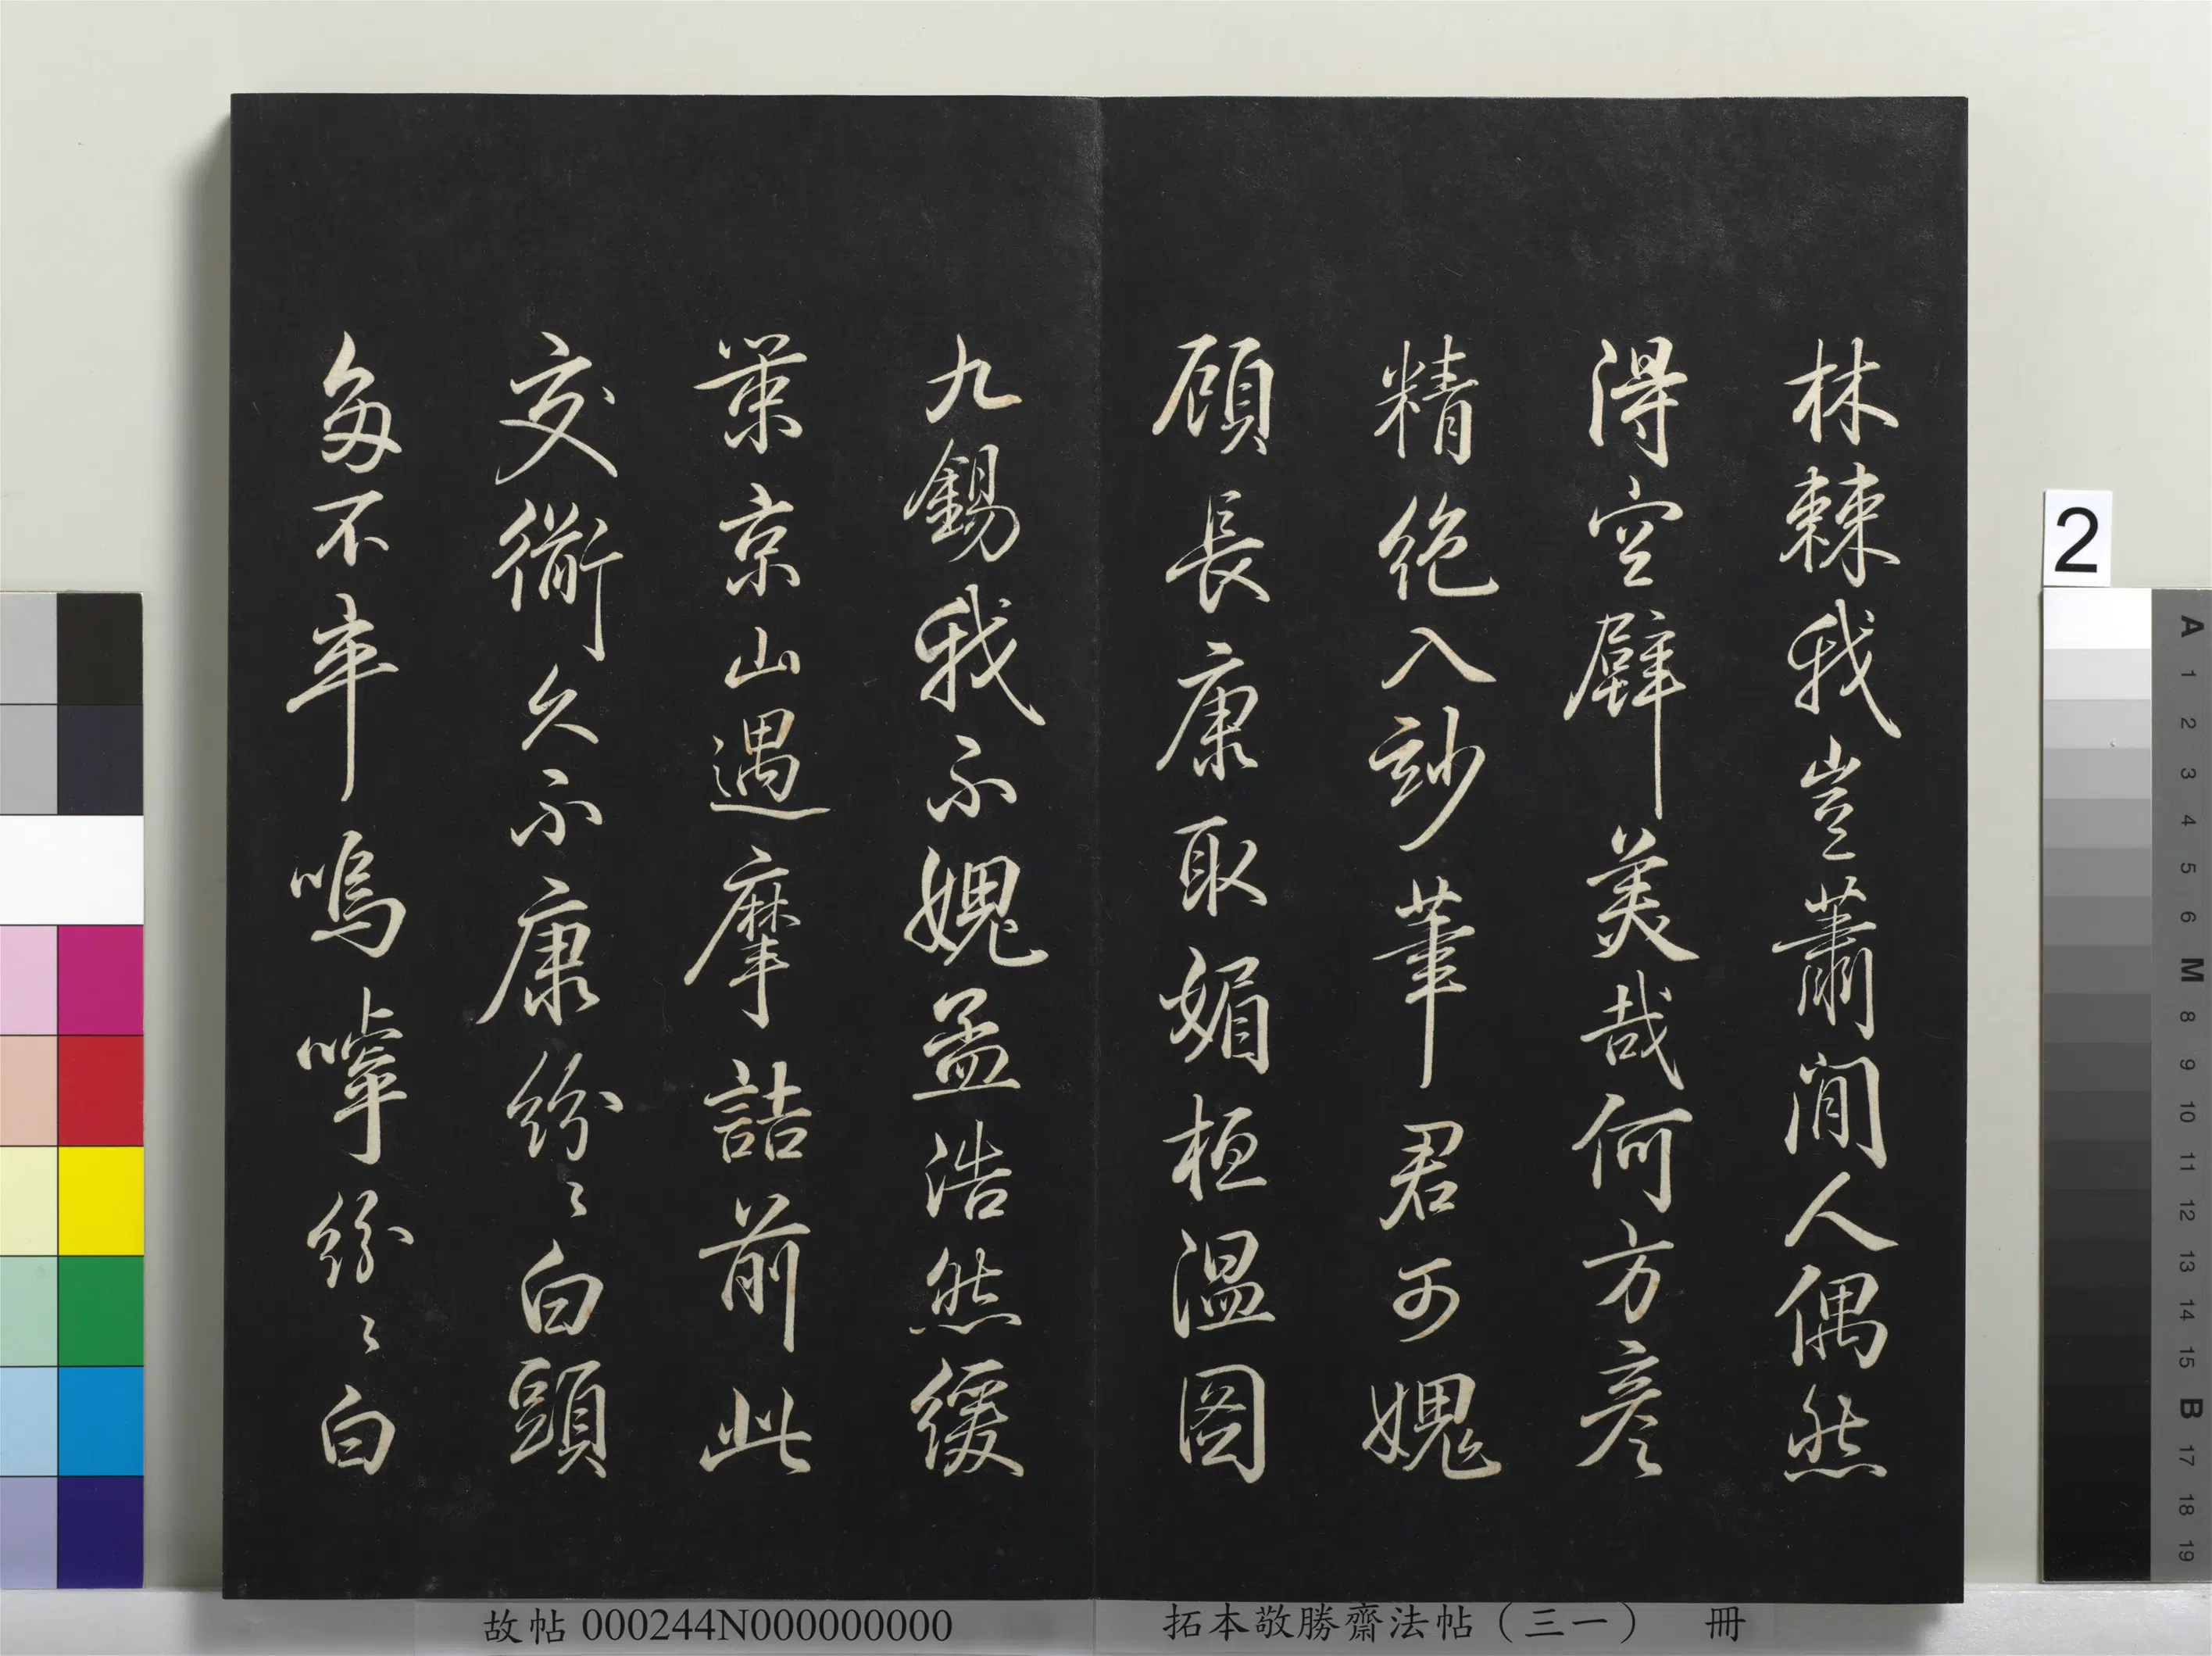 林棘我豈蕭閒人偶然
得空壁美哉何方彥
精絕入玅筆君可媿
顧長康取媚桓溫圖
九錫我不媿孟浩然緩
策京山遇摩詰前此
交久不康紛〻白頭
每不卒嗚嘑紛〻白
2
A 1 2 3 4 5 6 M 8 9 10 11 12 13 14 15 B 17 18 19
故帖 000244N000000000
拓本敬勝齋法帖（三一） 冊